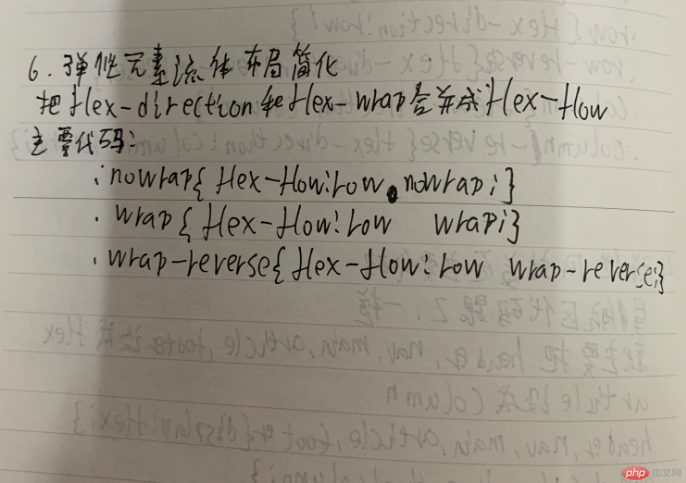 6. 弹性元素流体布局简化
把flex-direction和flex-wrap合并成flex-flow
主要代码:
.nowrap{flex-flow:row nowrap;}
.wrap{flex-flow:row wrap;}
.wrap-reverse{flex-flow:row wrap-reverse;}
php 中文网